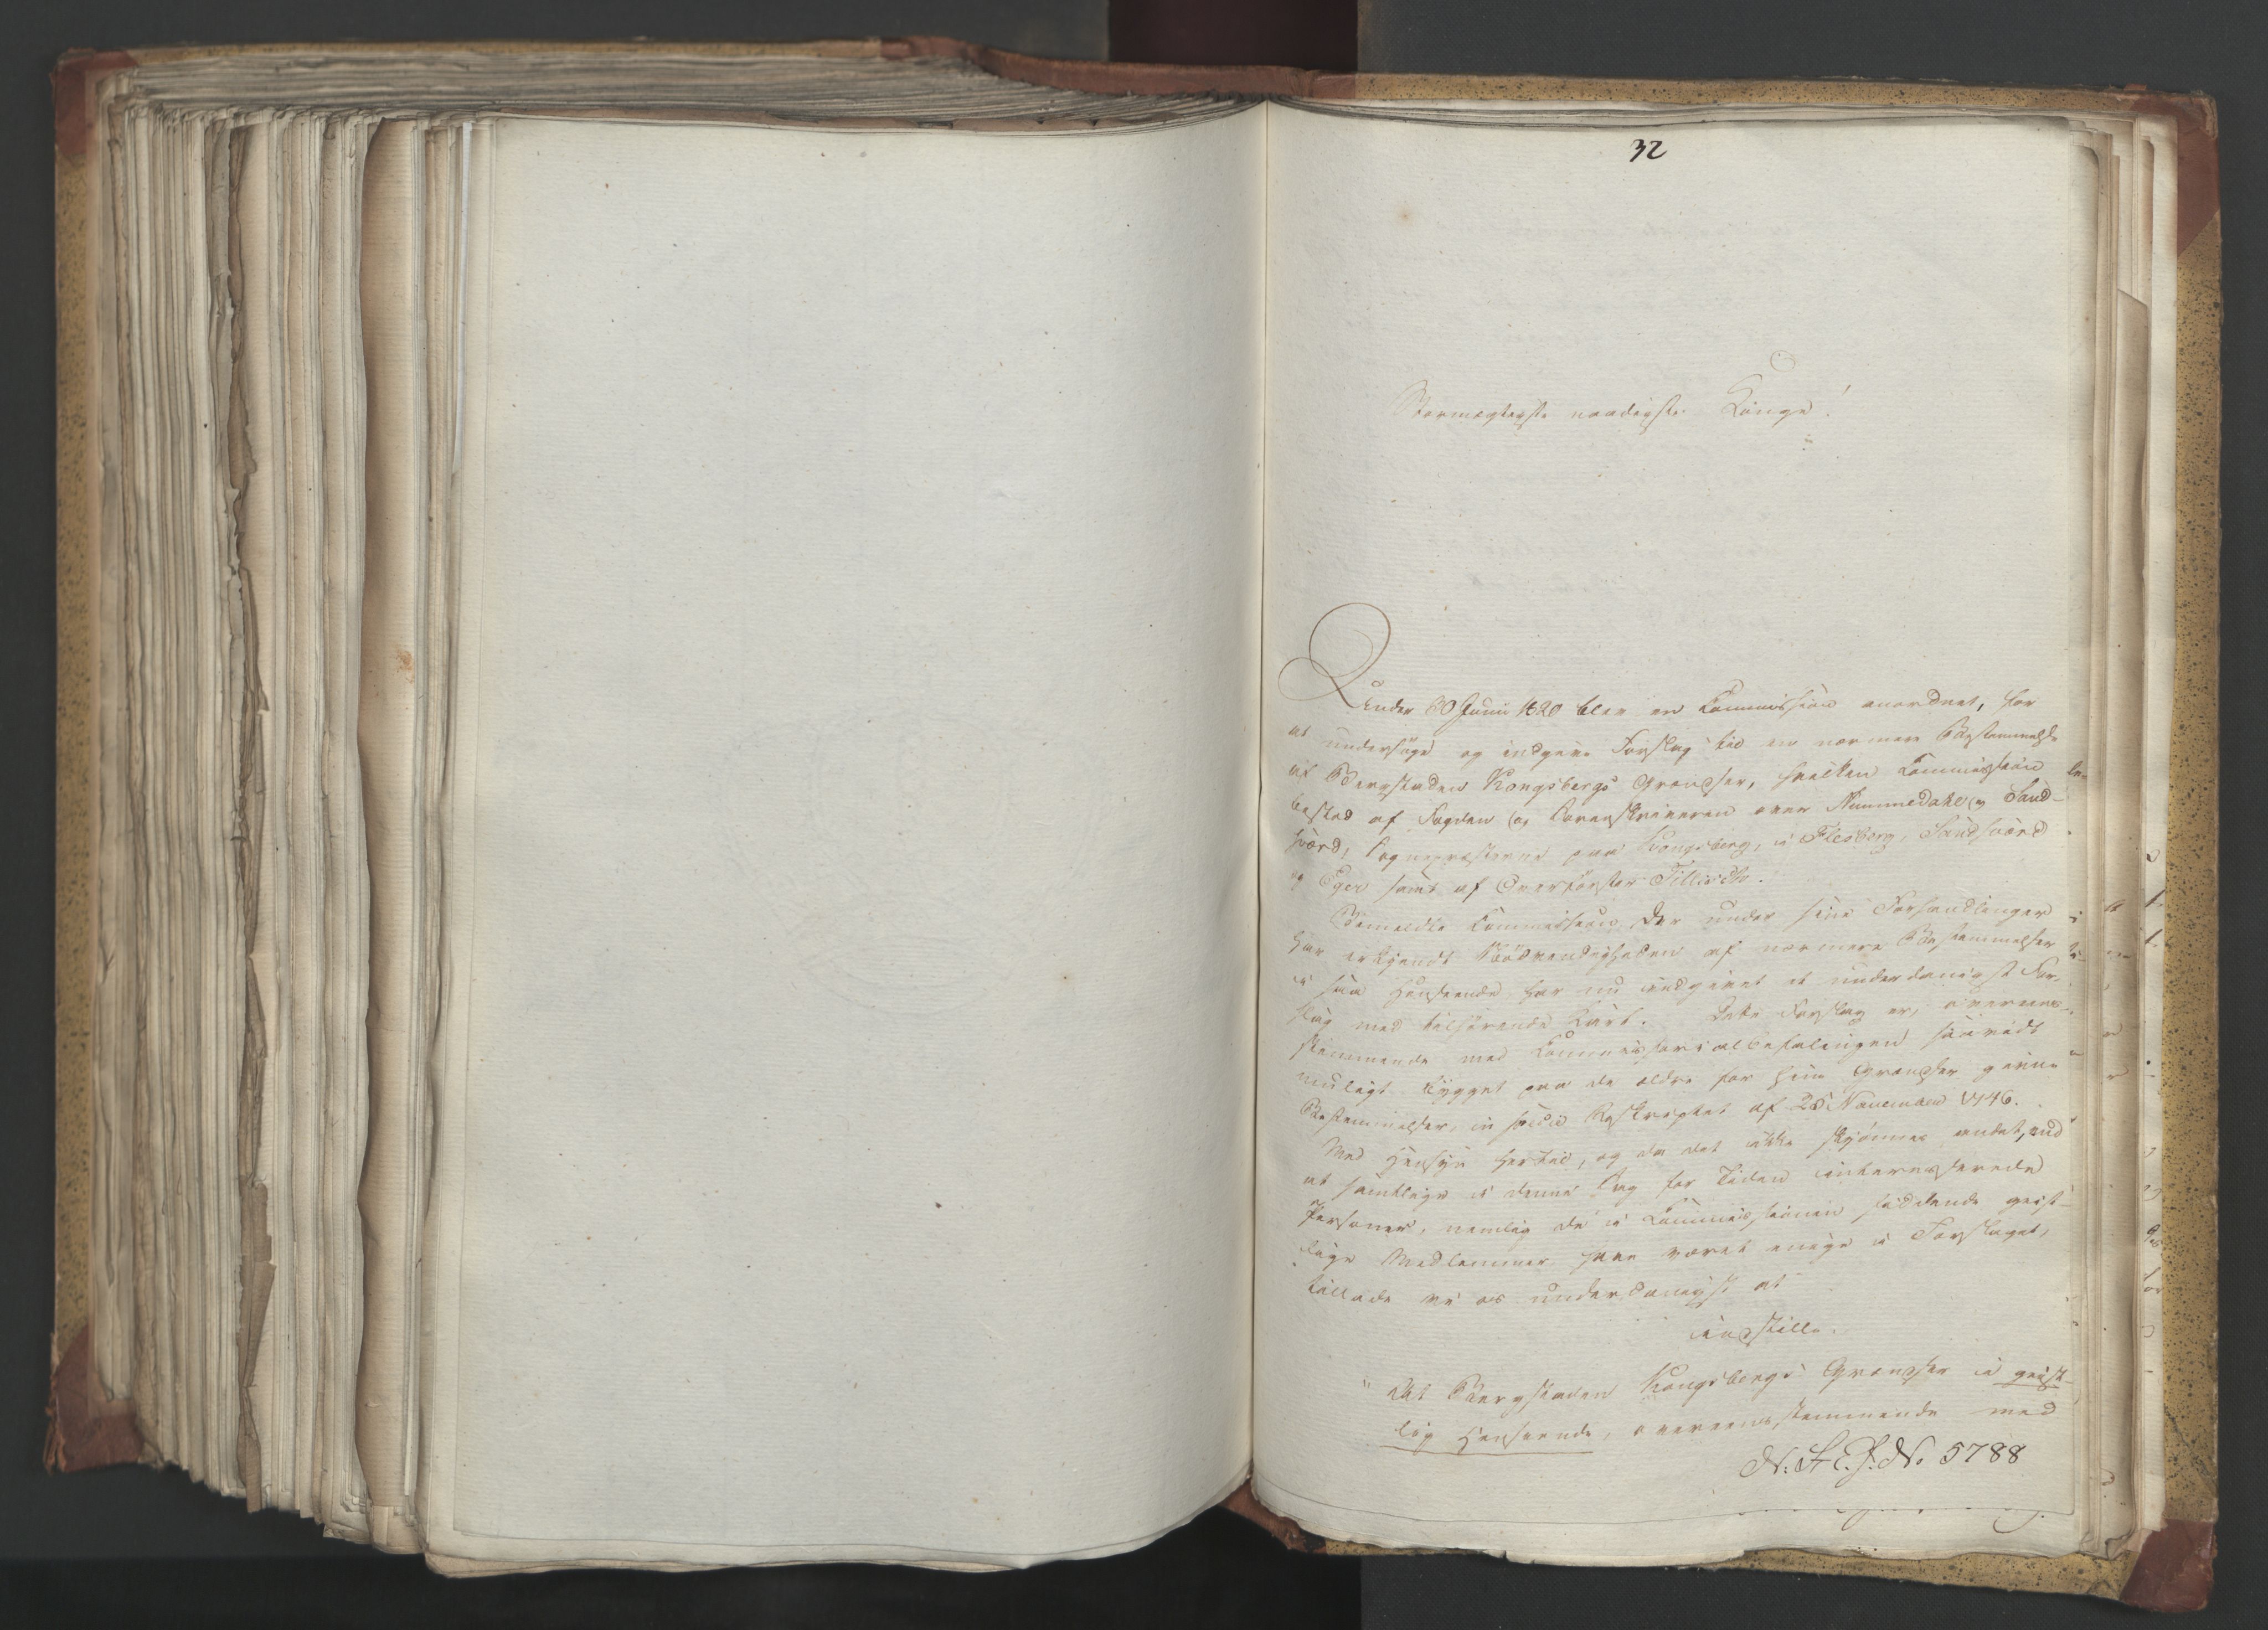 32
Stormægtigste naadigste Konge!
Under 30 Junii 1820 blev en Kommission anordnet, for
at undersöge og indgive Forslag til en nærmere Bestemmelse
af Bergstaden Kongsbergs Grændser, hvilken Kommission be-
bestod af Fogden og Sorenskriveren over Nummedahl og Sand-
sværd, Sognepræsterne paa Kongsberg, i Flesberg, Sandsværd
og Eger samt af Overförster Tillisch.
Bemeldte Kommission der under sine Forhandlinger
har erkjendt Nödvendigheden af nærmere Bestemmelser
i saa Henseende har nu indgivet et underdanigst For-
slag med tilhörende Kart. Dette Forslag er, overeens-
stemmende med Kommissorialbefalingen saavidt
muligt bygget paa de ældre for hine Grændser givne
Bestemmelser, in specie Reskriptet af 25 November 1746.
Med Hensyn hertil, og da det ikke skjönnes andet, end
at samtlige i denne Sag for Tiden interesserede
Personer, nemlig de i Kommissionen siddende geist-
lige Medlemmer have været enige i Forslaget,
tillade vi os underdanigst at
indstille.
"At Bergstaden Kongsbergs Grændser i geist-
lig Henseende, overeensstemmende med
N: St. C. J. No 5788